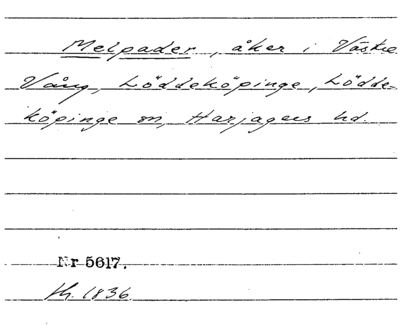 Melpader, åker i Västre
Vång, Löddeköpinge, Lödde-
köpinge sn, Harjagers hd.
Nr 5617.
1836